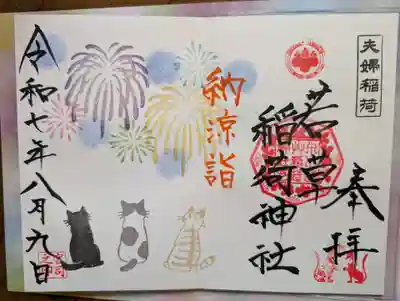 夫婦稲荷
奉拝
若草
稲荷神社
納涼詣
令和七年八月九日